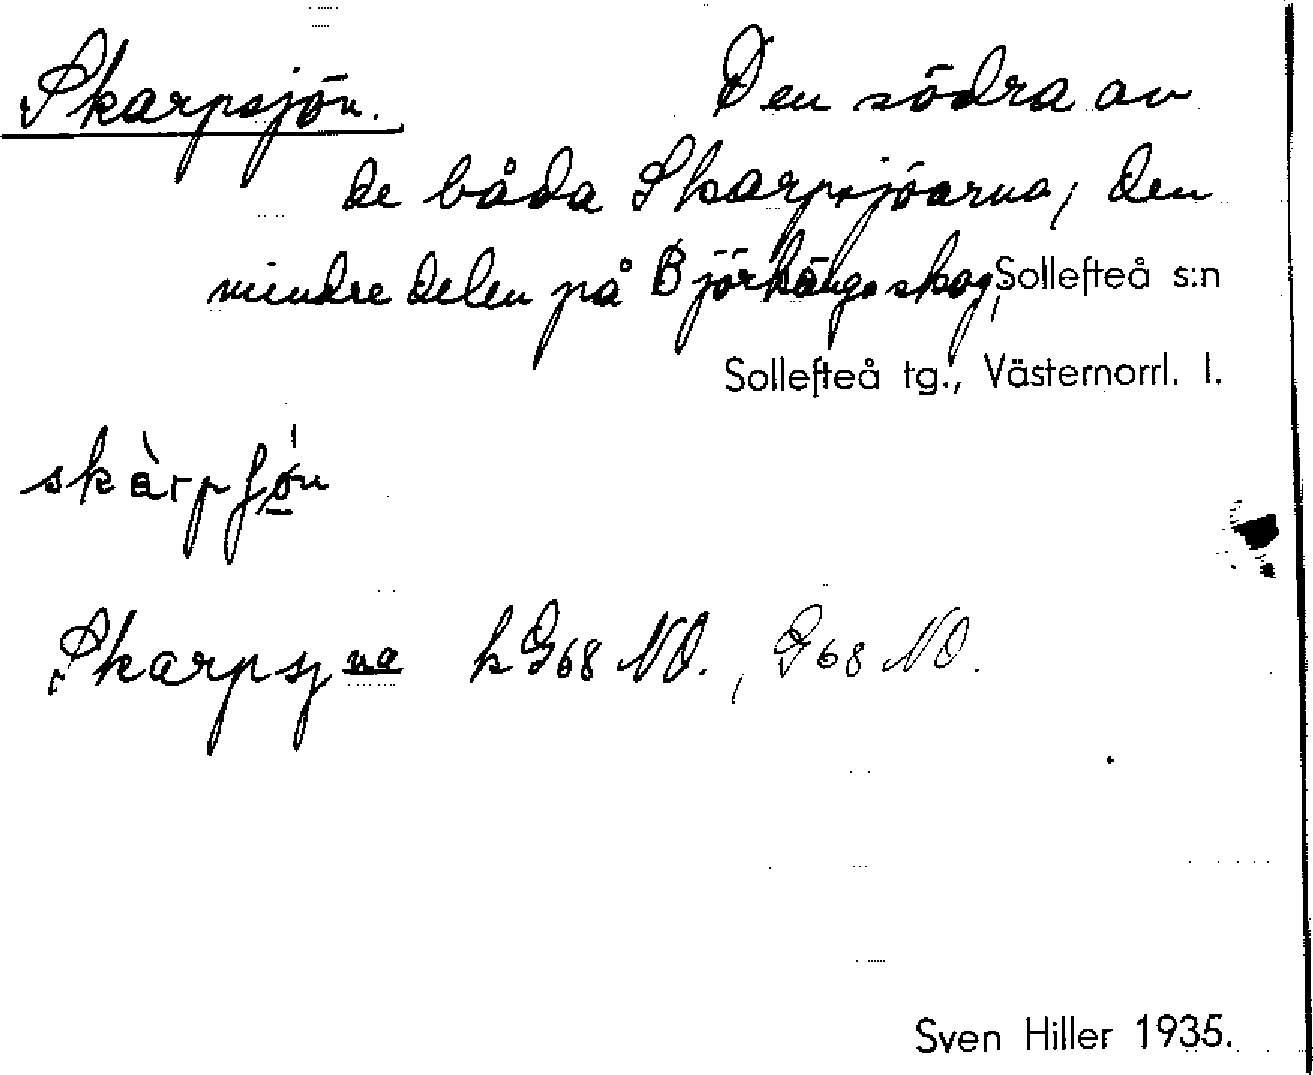 Skarpsjön. Den södra av
de båda Skarpsjöarna, den
mindre delen på Björkängs skog,
Sollefteå s:n
Sollefteå tg., Västernorrl. l.
skàrpʃǿ̲n
Skarpsjna k G68 NO., G68 NO.
Sven Hiller 1935.